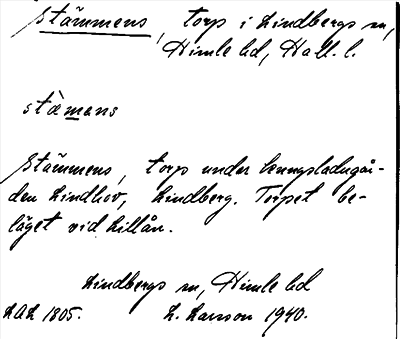 Stämmens, torp i Lindbergs sn,
Himle hd, Hall. l.
stä̀mans
Stämmens, torp under kungsladugår-
den Lindhov, Lindberg. Torpet be-
läget vid Lillån.
Lindbergs sn, Himle hd
LAL 1805. L. Larsson 1940.